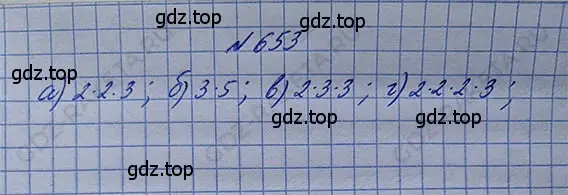 gdz.top
№ 653
gdz.top gdz.top
а) 2·2·3; б) 3·5; в) 2·3·3; г) 2·2·2·3;
gdz.top gdz.top
gdz.top